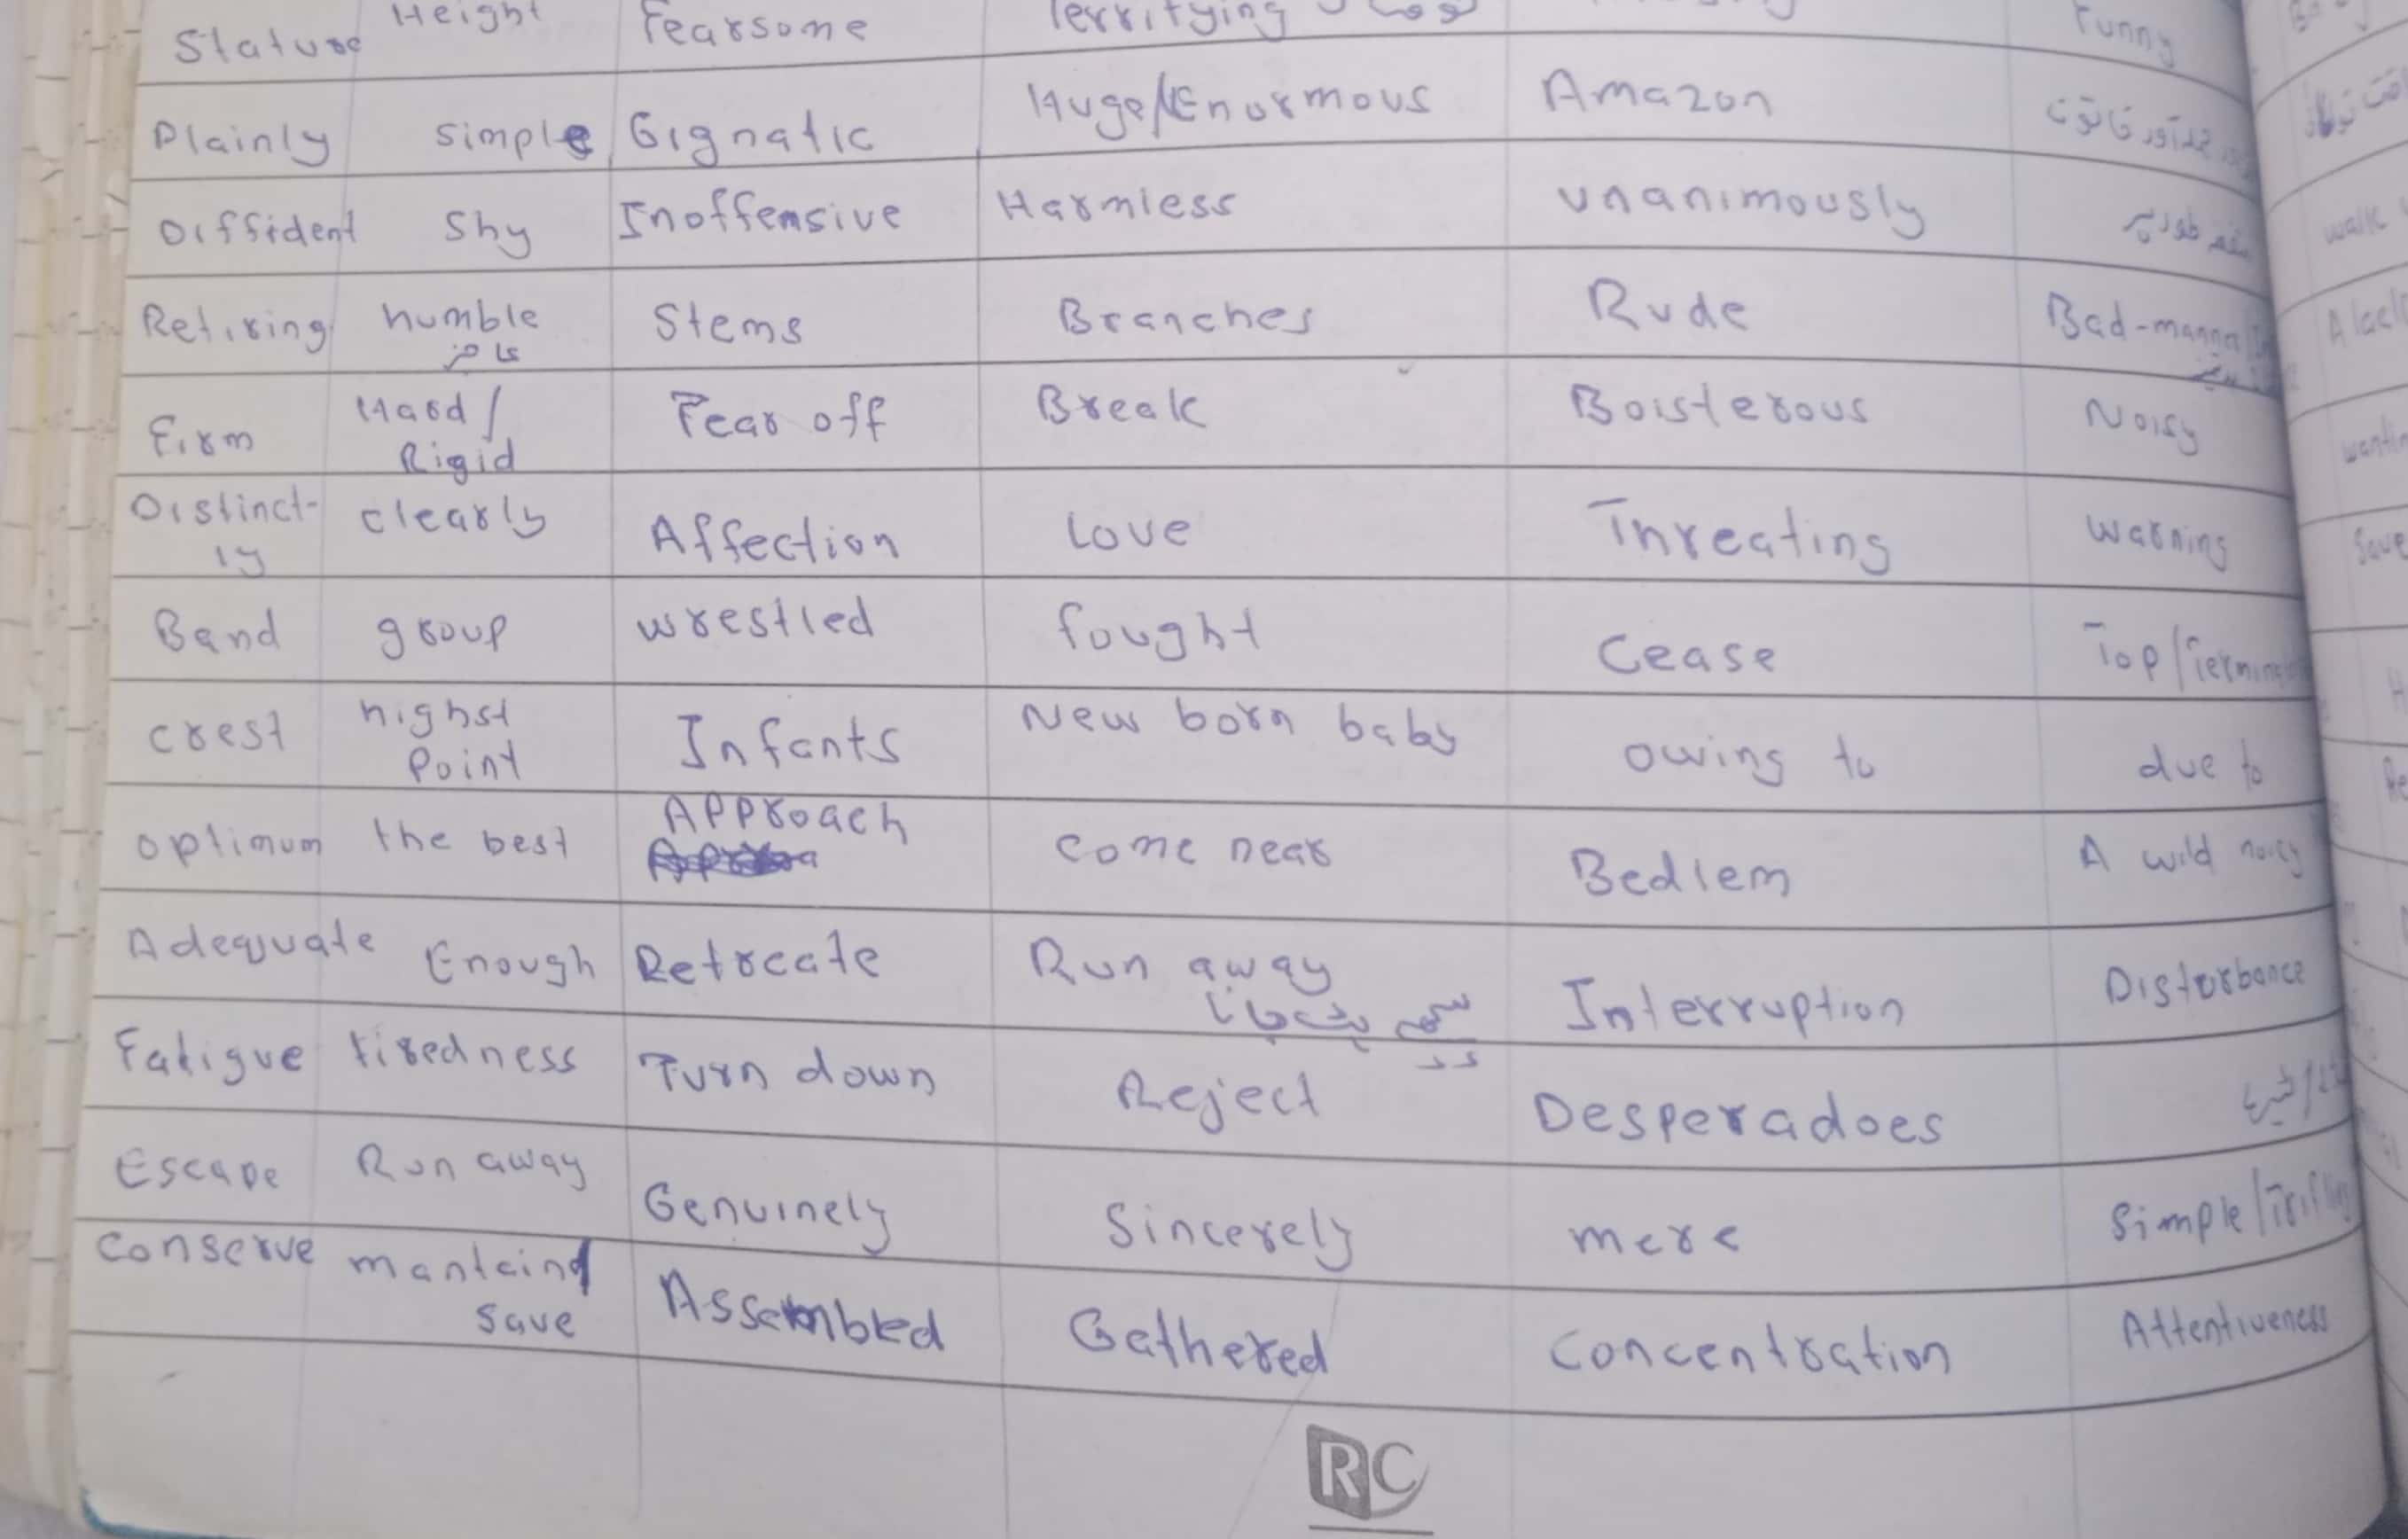 Stature Height Fearsome Terrifying Funny
Plainly simple Gignatic Huge/Enormous Amazon
Diffident Shy Inoffensive Harmless unanimously
Retiring humble Stems Branches Rude Bad-manner
عاجز
Firm Hard/ Tear off Break Boisterous Noisy
Rigid
Distinct- clearly Affection Love Threating Warning
ly
Band group wrestled fought Cease Top/
crest highst Infants New born baby owing to due to
Point
optimum the best Approach come near Bedlem A wild noisy
Adequate Enough Retreate Run away Interruption Disturbance
Fatigue tiredness Turn down Reject Desperadoes
Escape Run away Genuinely Sincerely mere Simple/
Conserve mantain/ Assembled Gathered Concentration Attentiveness
save
RC
walk
Save